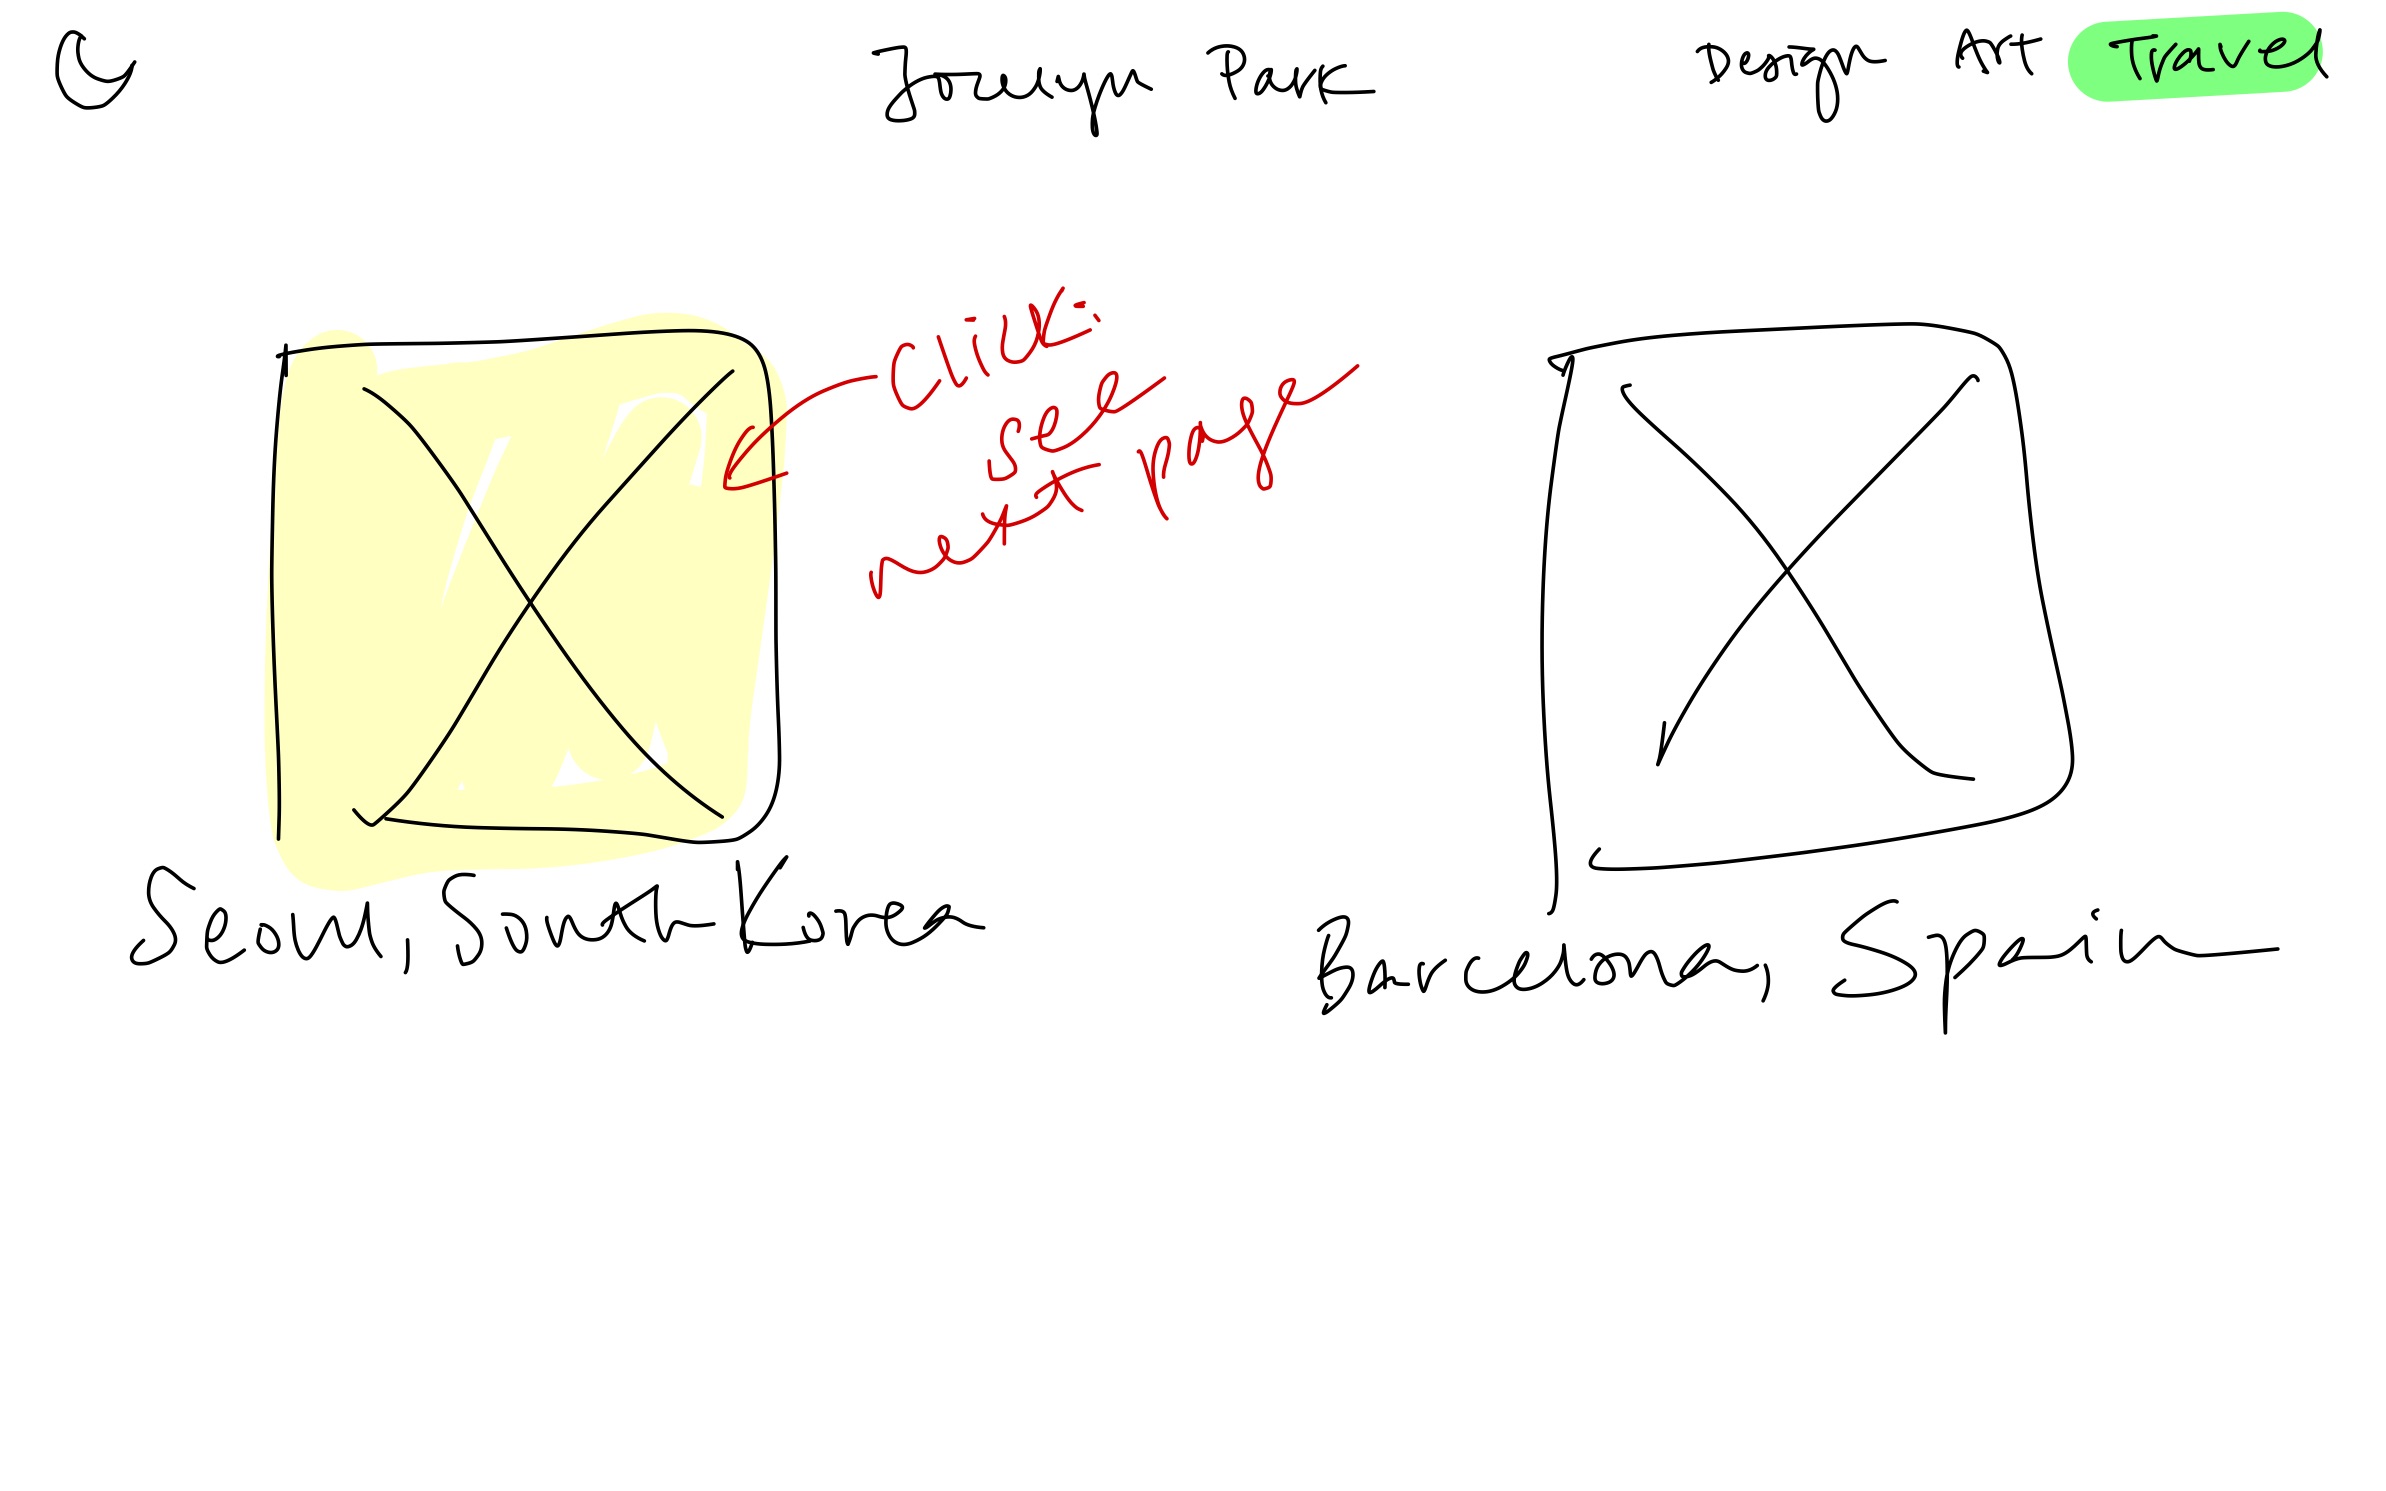 C Park Design Art Travel
Click:
see
next page
Seoul, South Korea
Barcelona, Spain